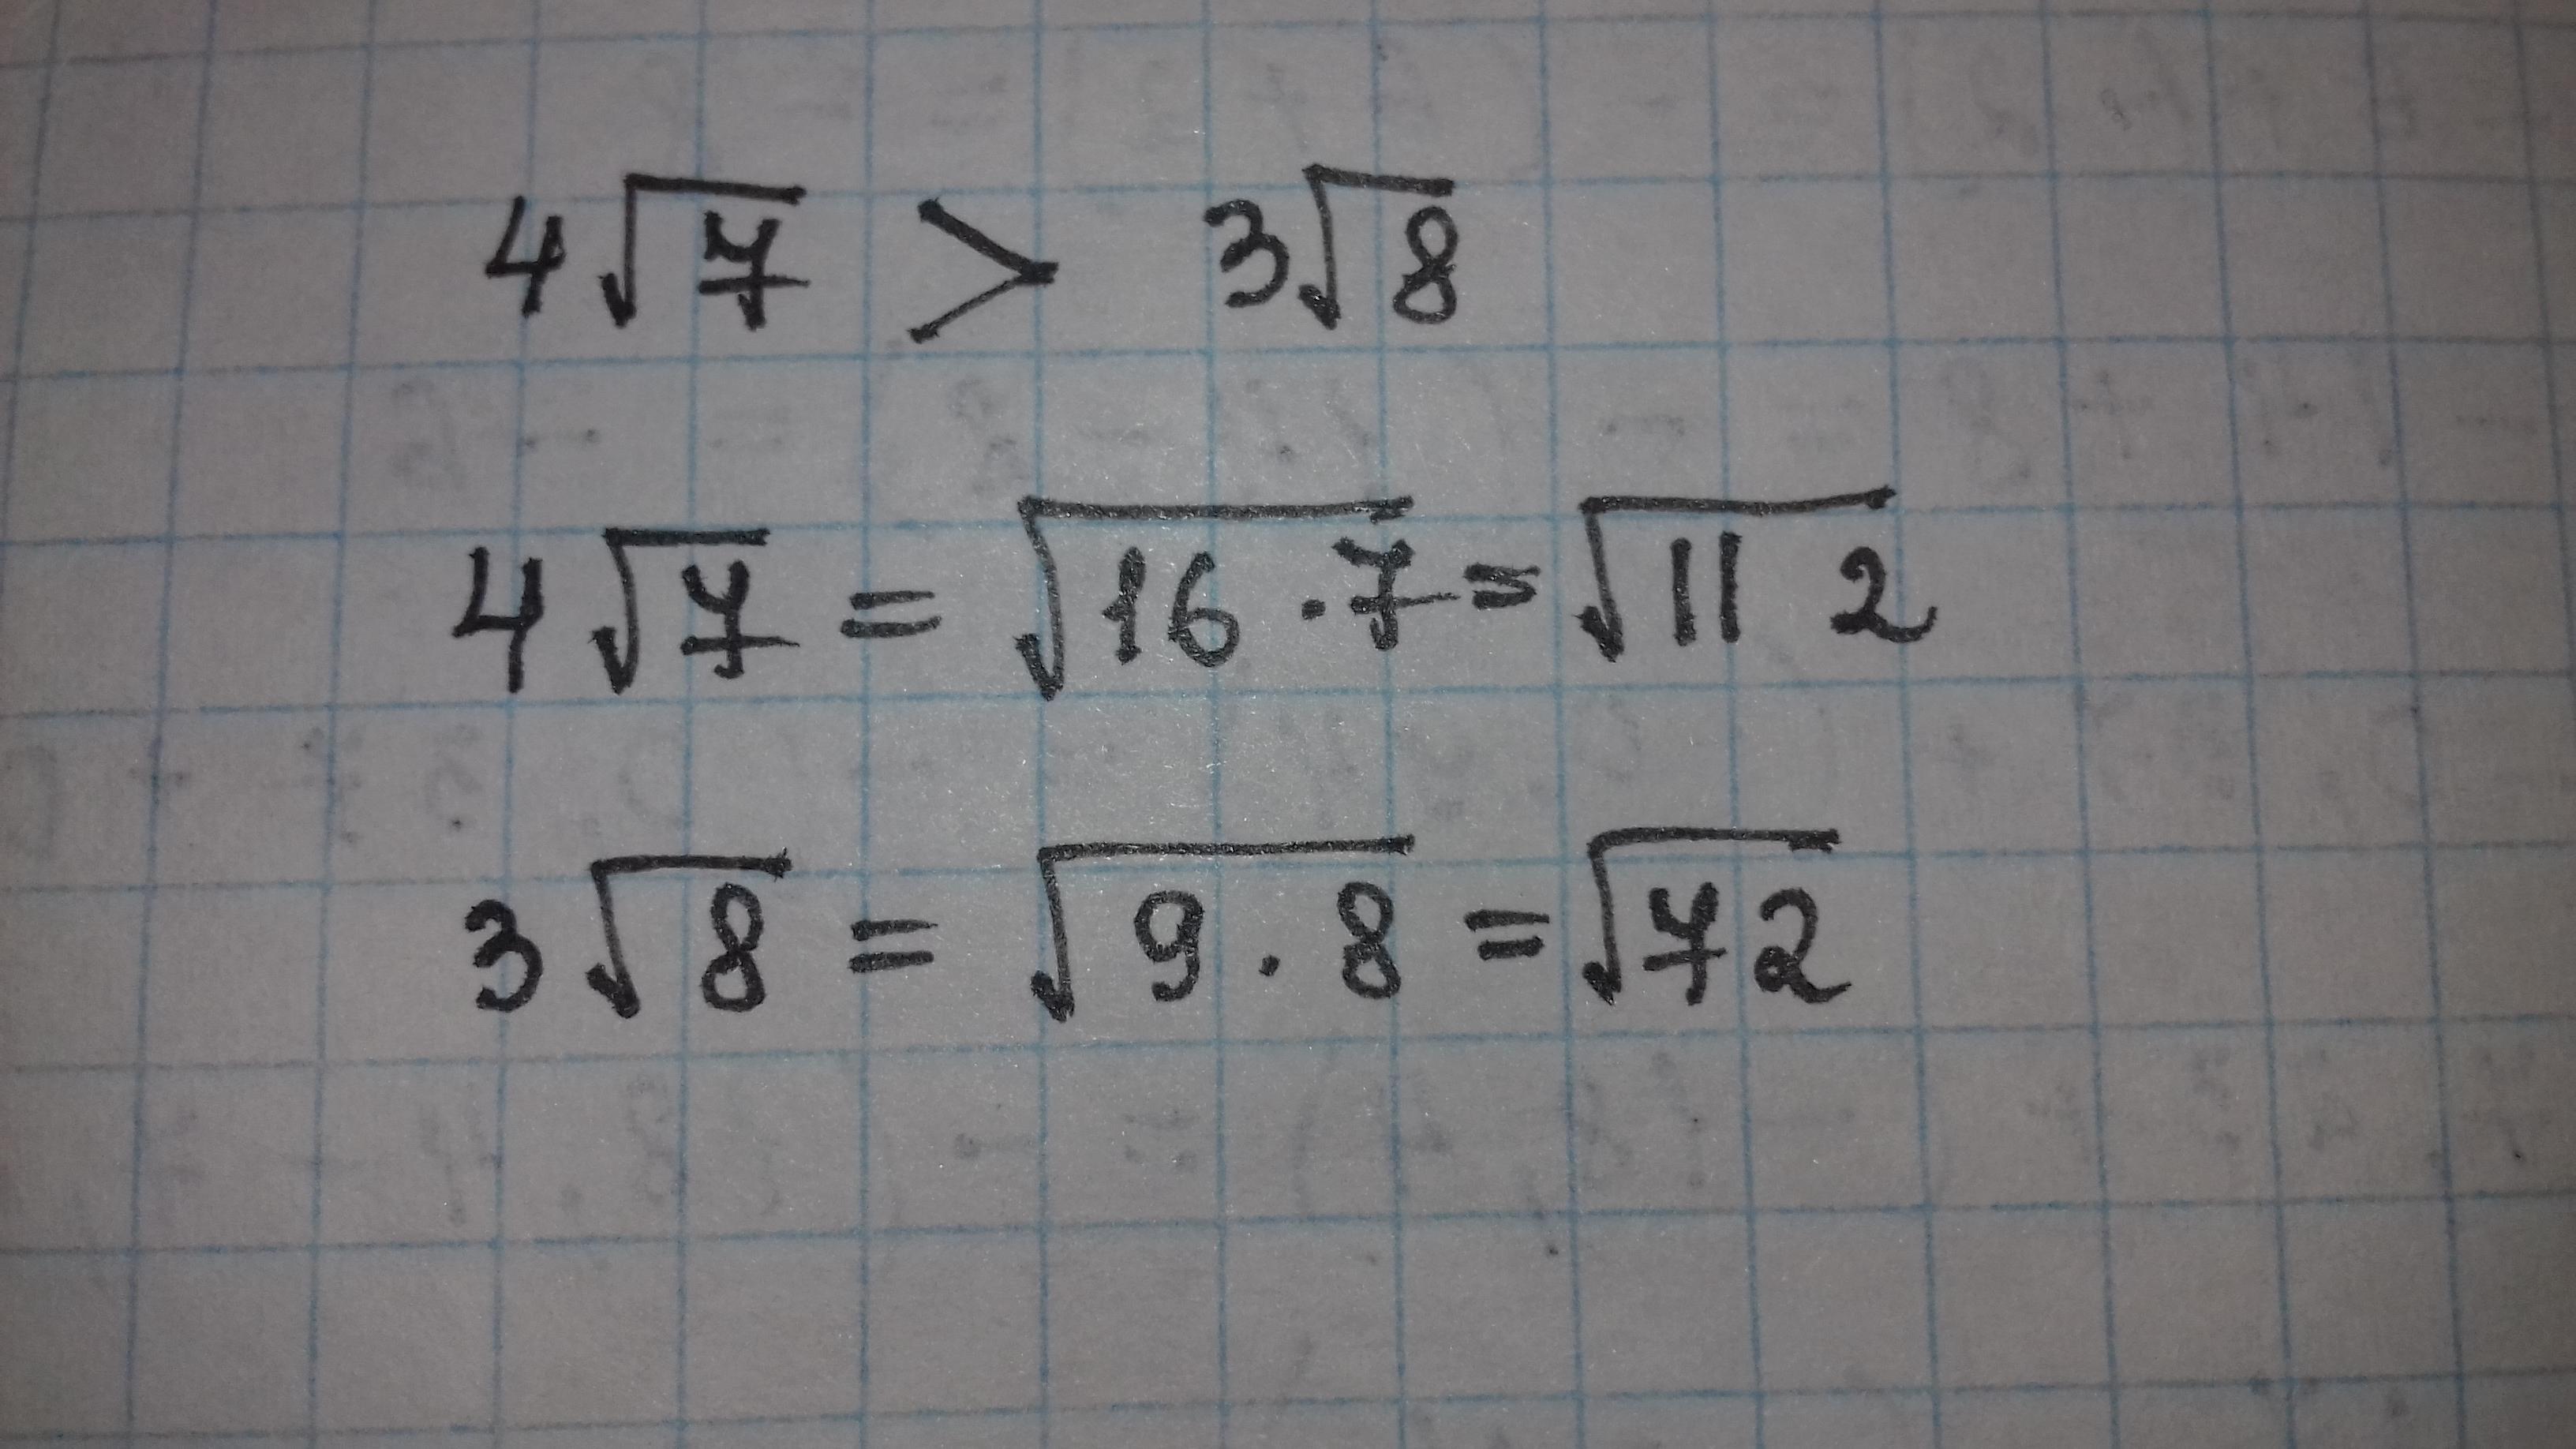 4√7 > 3√8
4√7 = √16·7 = √112
3√8 = √9·8 = √72